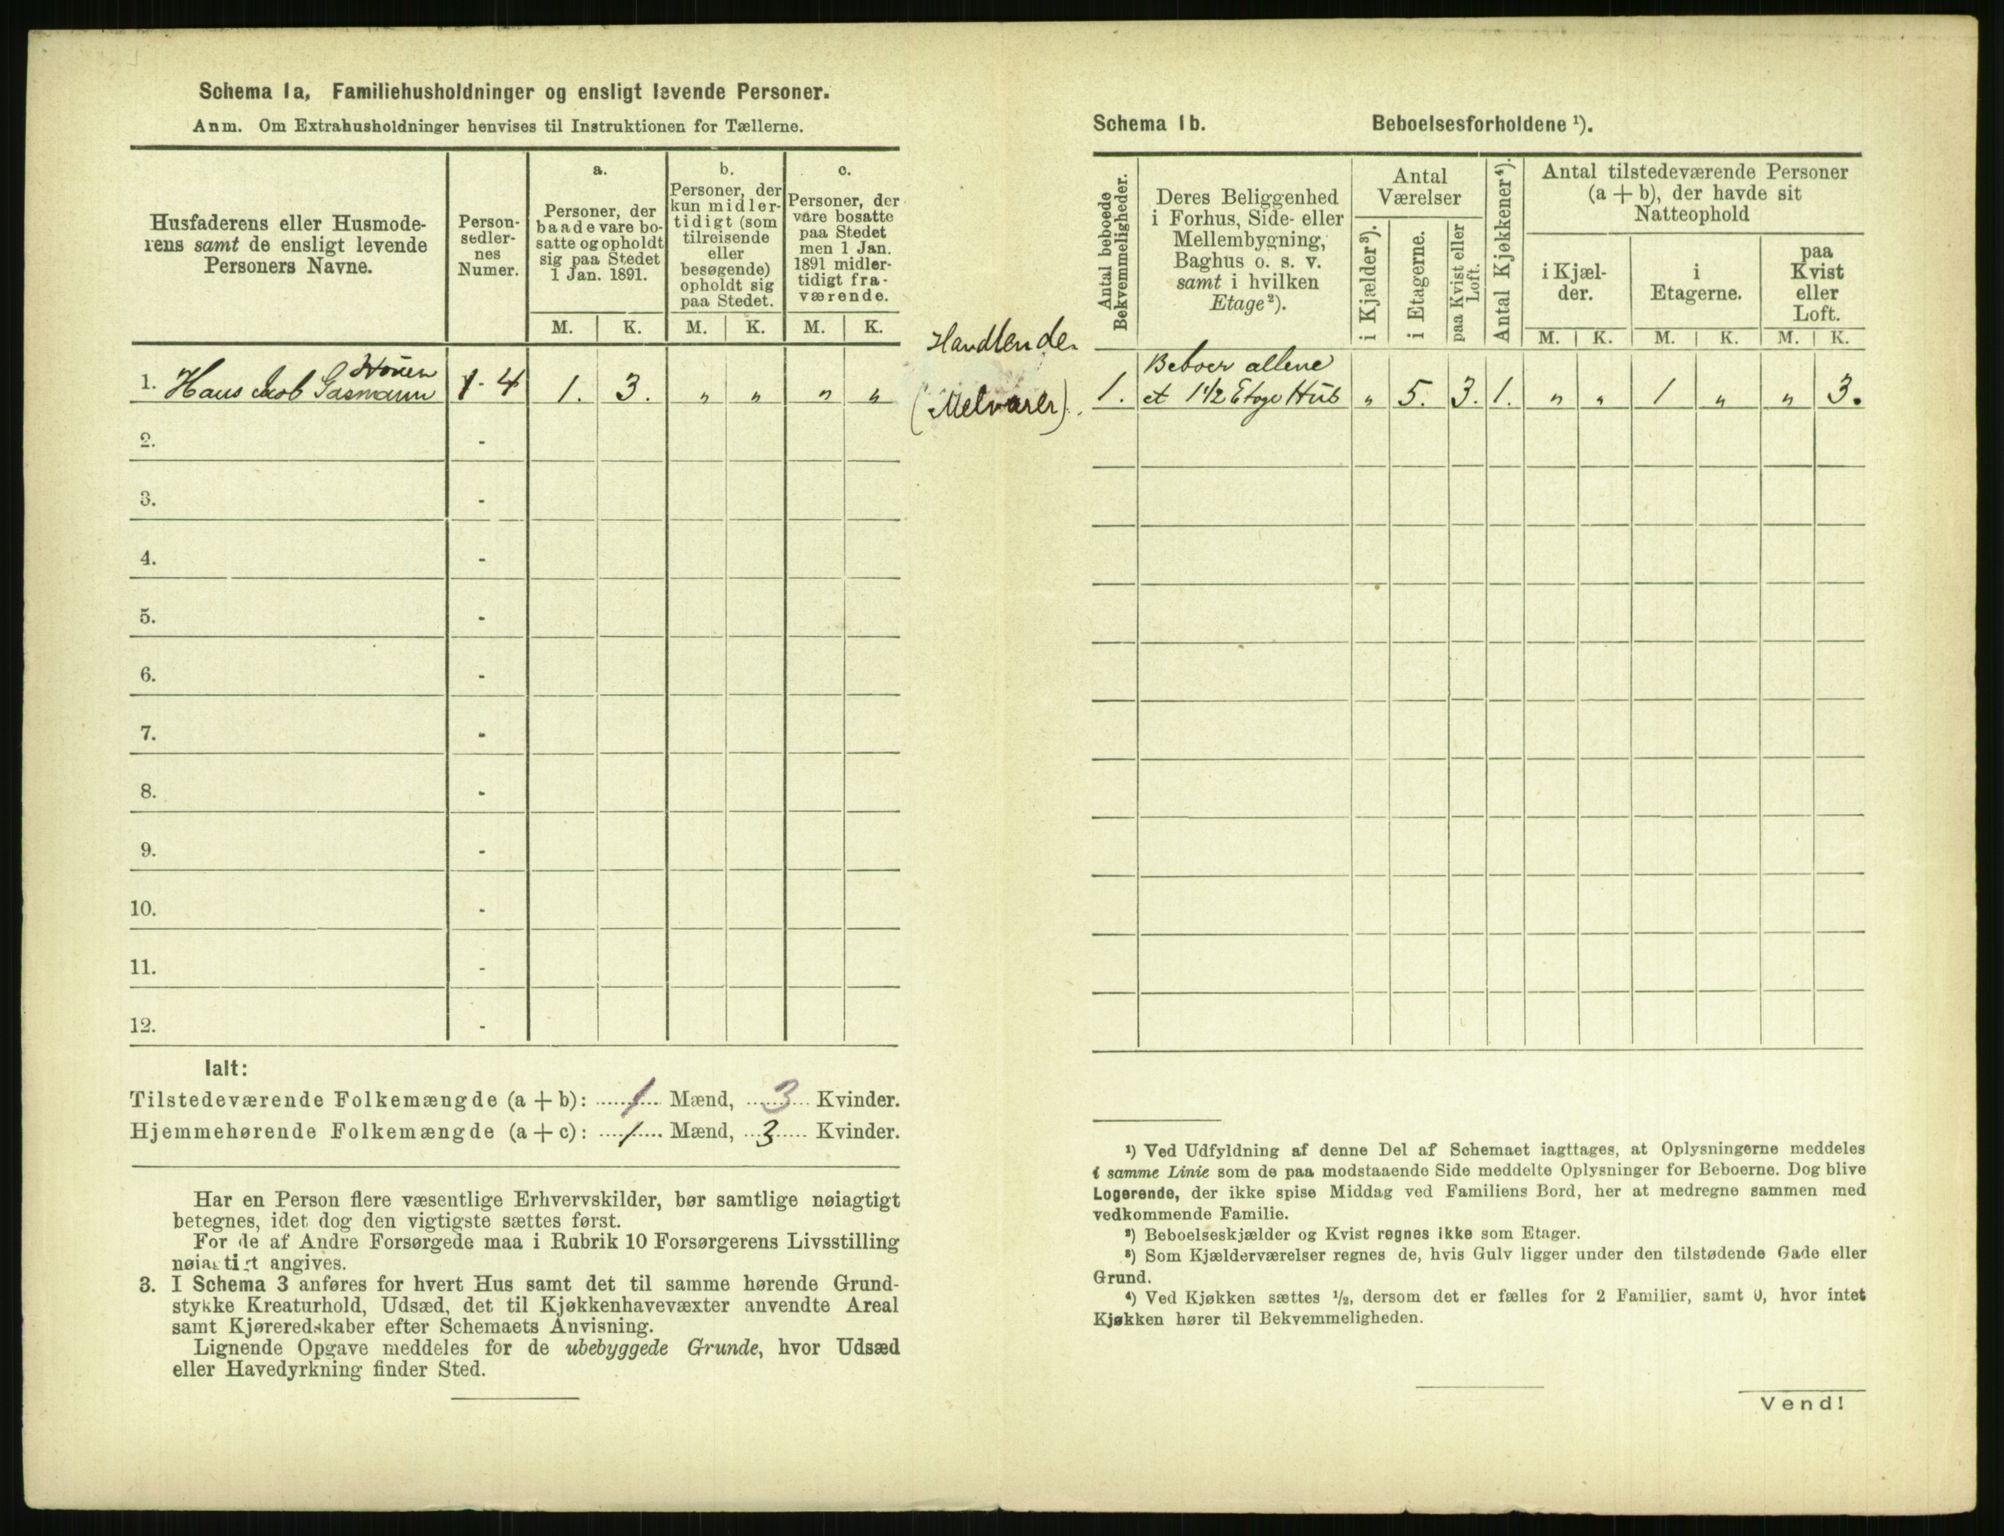 Schema 1a, Familiehusholdninger og ensligt levende Personer.
Anm. Om Extrahusholdninger henvises til Instruktionen for Tællerne.
Husfaderens eller Husmode-
rens samt de ensligt levende
Personers Navne.
Person-
sedler-
nes
Numer.
a.
Personer, der
baade vare bo-
satte og opholdt
sig paa Stedet
1 Jan. 1891.
b.
Personer, der
kun midler-
tidigt (som
tilreisende
eller
besøgende)
opholdt sig
paa Stedet.
c.
Personer, der
vare bosatte
paa Stedet
men 1 Jan.
1891 midler-
tidigt fra-
værende.
M. K. M. K. M. K.
1. Hans Jacob Gasmann 1 - 4 1. 3. „ „ „ „
2. -
3. -
4. -
5. -
6. -
7. -
8. -
9. -
10. -
11. -
12. -
Ialt:
Tilstedeværende Folkemængde (a + b): 1 Mænd, 3 Kvinder.
Hjemmehørende Folkemængde (a + c): 1 Mænd, 3 Kvinder.
Har en Person flere væsentlige Erhvervskilder, bør samtlige nøiagtigt
betegnes, idet dog den vigtigste sættes først.
For de af Andre Forsørgede maa i Rubrik 10 Forsørgerens Livsstilling
nøiagtigt angives.
3. I Schema 3 anføres for hvert Hus samt det til samme hørende Grund-
stykke Kreaturhold, Udsæd, det til Kjøkkenhavevæxter anvendte Areal
samt Kjøreredskaber efter Schemaets Anvisning.
Lignende Opgave meddeles for de ubebyggede Grunde, hvor Udsæd
eller Havedyrkning finder Sted.
Handlende
(Melvarer).
Schema 1b. Beboelsesforholdene ¹).
Antal beboede
Bekvemmeligheder.
Deres Beliggenhed
i Forhus, Side- eller
Mellembygning,
Baghus o. s. v.
samt i hvilken
Etage²).
Antal
Værelser
i Kjælder³).
i Etagerne.
paa Kvist eller
Loft.
Antal Kjøkkener⁴).
Antal tilstedeværende Personer
(a + b), der havde sit
Natteophold
i Kjæl-
der.
i
Etagerne.
paa
Kvist
eller
Loft.
M. K. M. K. M. K.
Beboer allene
1. et 1½ Etage Hus „ 5. 3. 1. „ „ 1 „ „ 3.
¹) Ved Udfyldning af denne Del af Schemaet iagttages, at Oplysningerne meddeles
i samme Linie som de paa modstaaende Side meddelte Oplysninger for Beboerne. Dog blive
Logerende, der ikke spise Middag ved Familiens Bord, her at medregne sammen med
vedkommende Familie.
²) Beboelseskjælder og Kvist regnes ikke som Etager.
³) Som Kjælderværelser regnes de, hvis Gulv ligger under den tilstødende Gade eller
Grund.
⁴) Ved Kjøkken sættes ½, dersom det er fælles for 2 Familier, samt 0, hvor intet
Kjøkken hører til Bekvemmeligheden.
Vend!